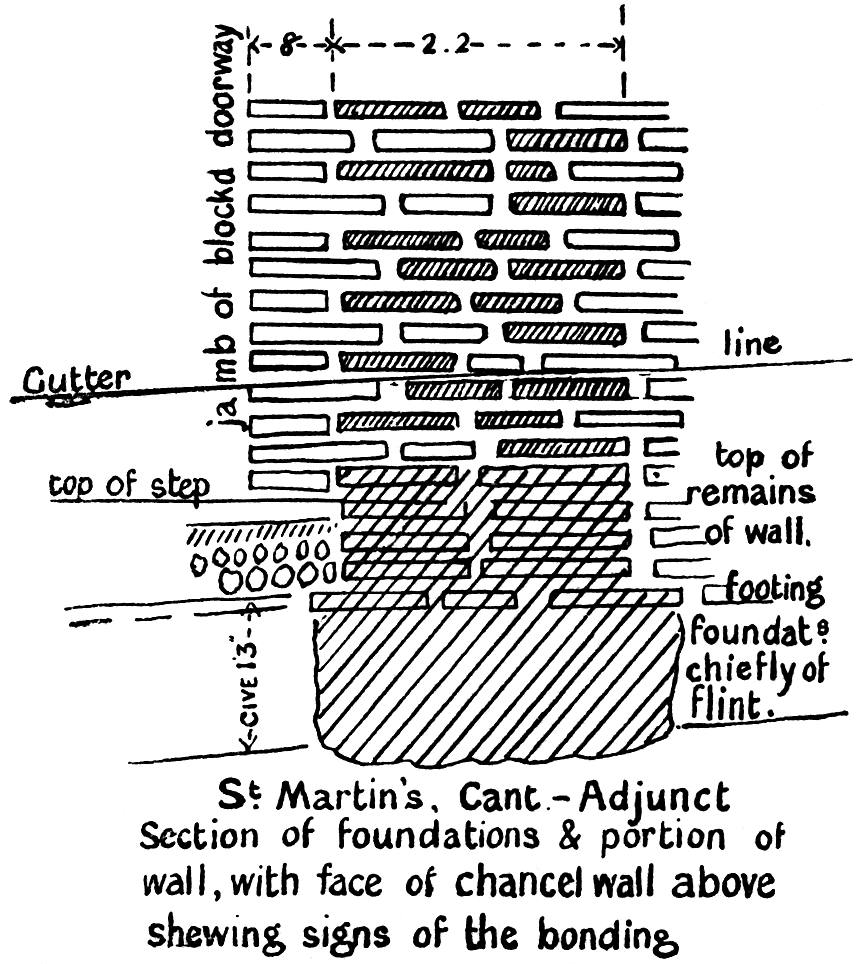 8 2.2
jamb of blockd doorway
line
Gutter
top of step
top of
remains
of wall.
footing
foundatˢ.
chiefly of
flint.
CIVE 1'3"
Sᵗ. Martin's, Cant.-Adjunct
Section of foundations & portion of
wall, with face of chancel wall above
shewing signs of the bonding